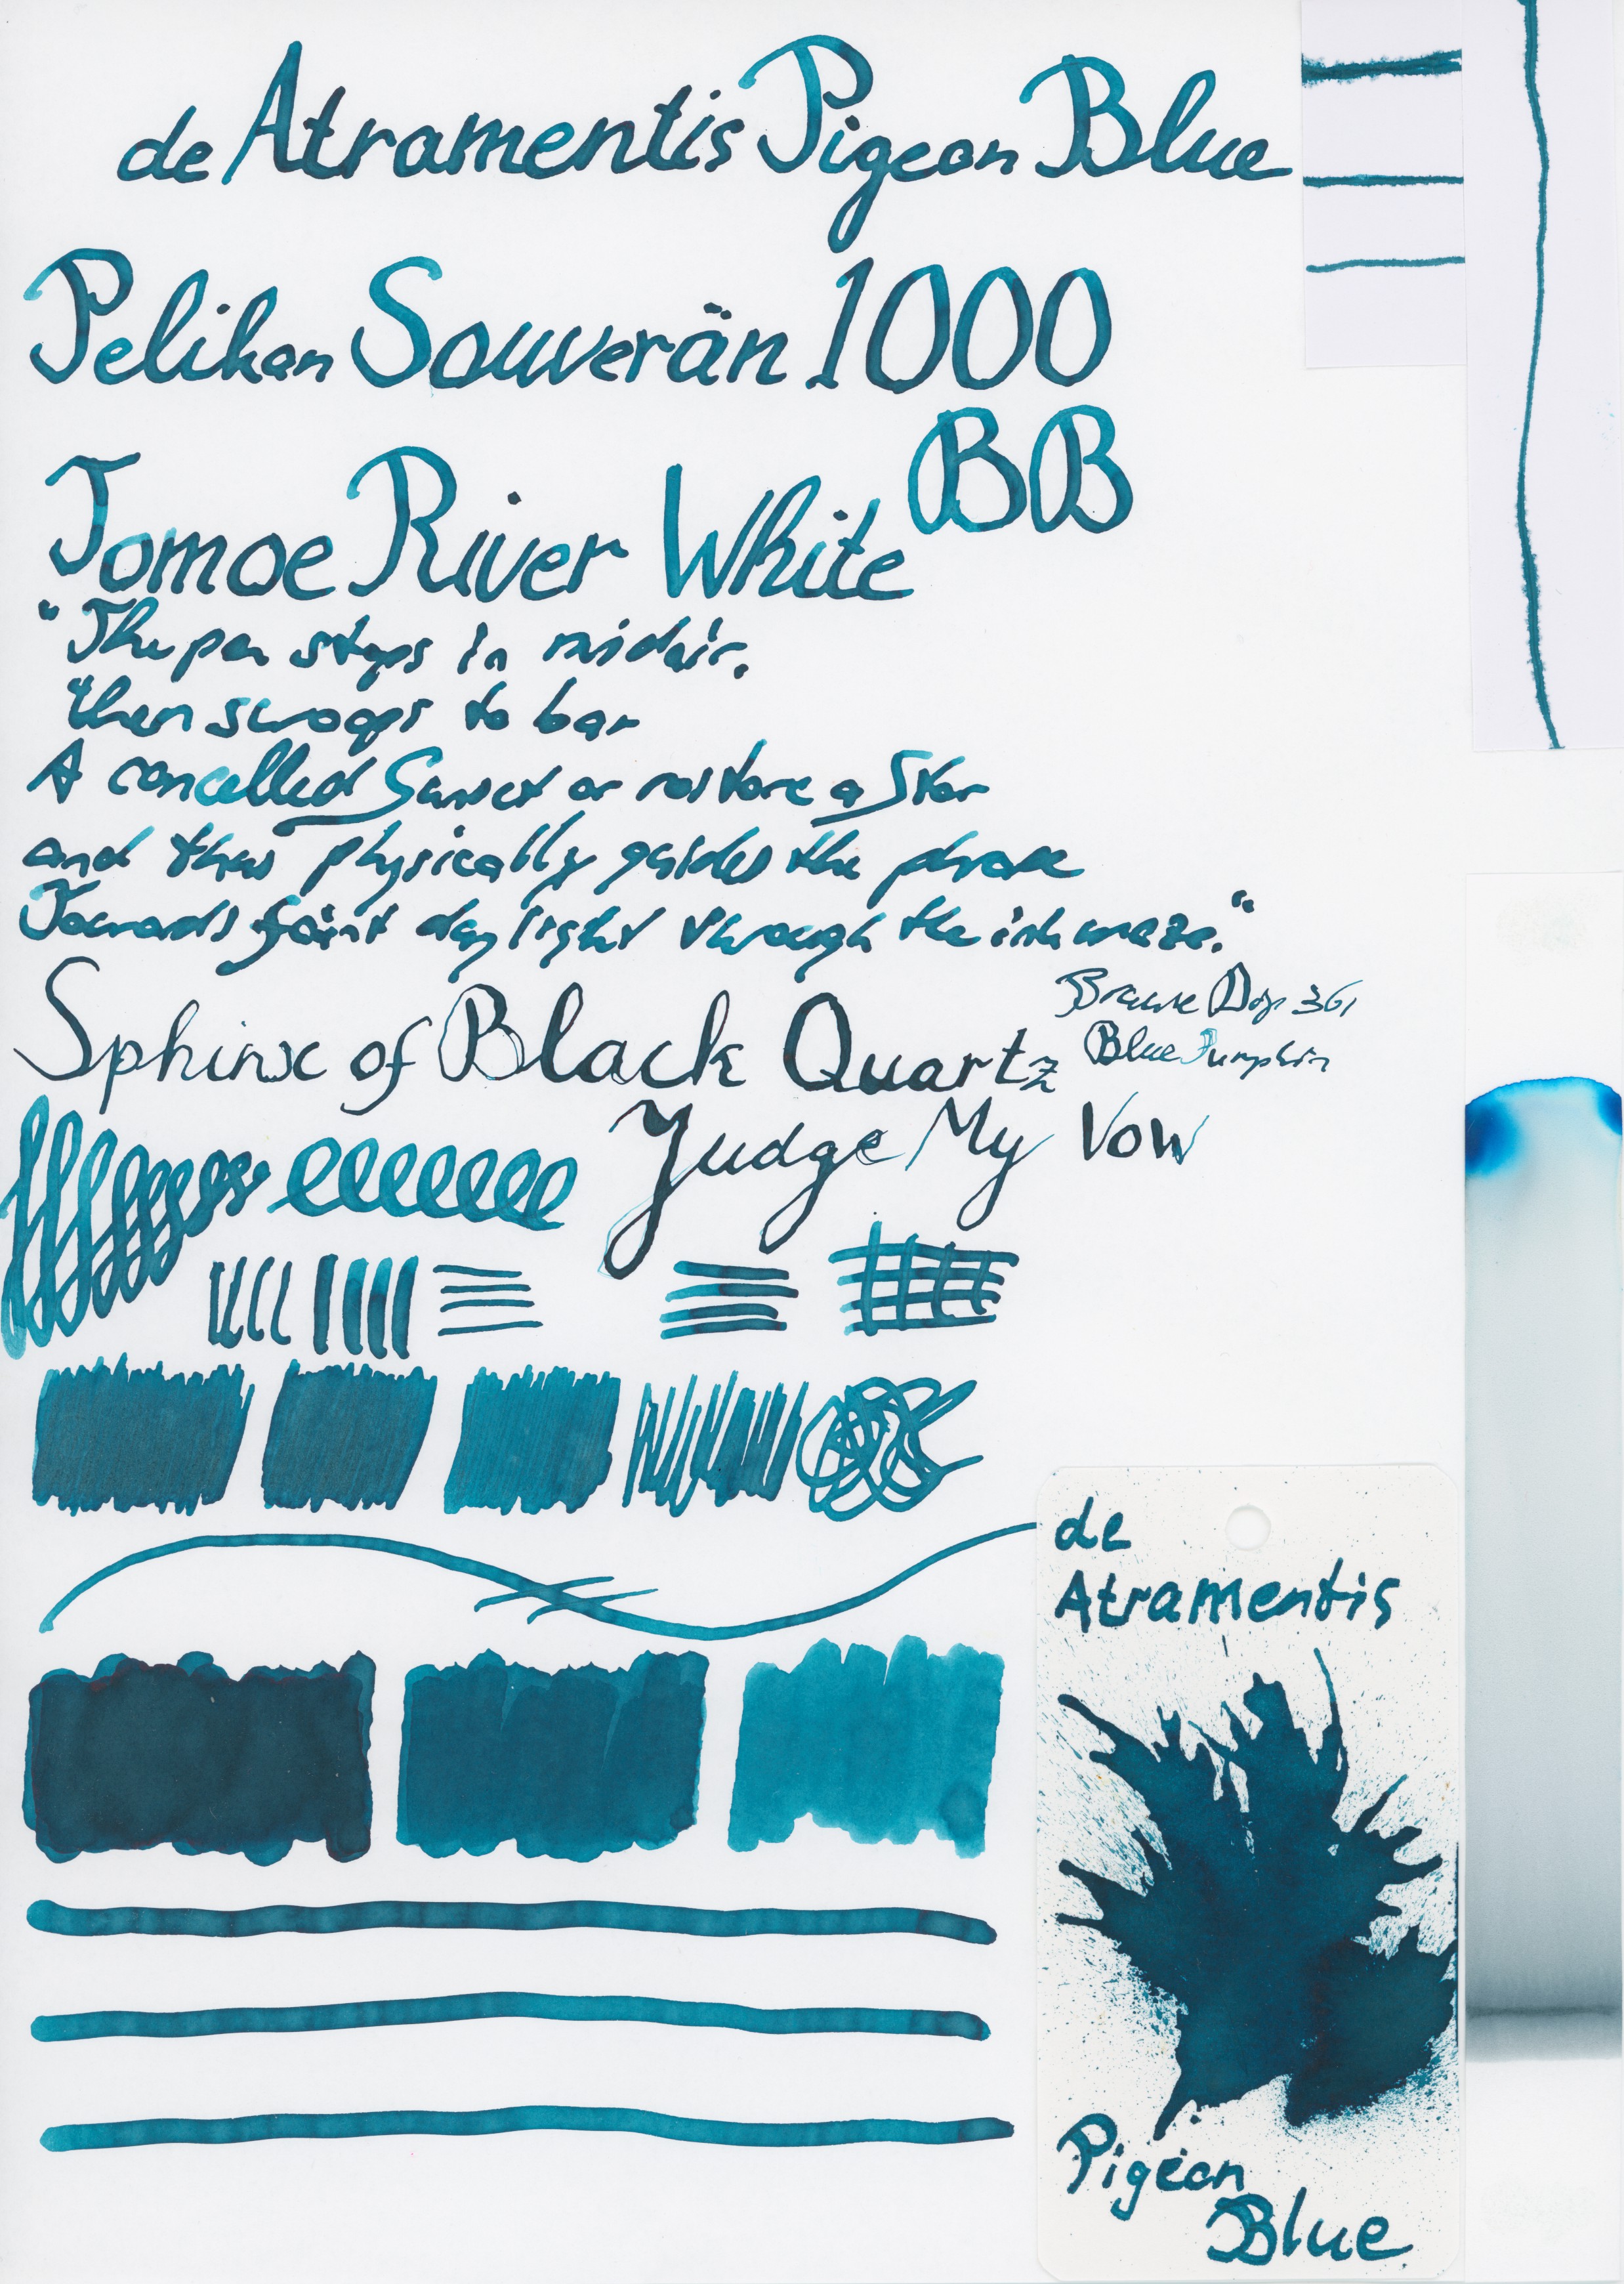 de Atramentis Pigeon Blue
Pelikan Souverän 1000
BB
Tomoe River White
"The pen stops in midair,
then swoops to bar
A cancelled Sunset or restore a Star
and thus physically guides the phrase
Towards faint daylight through the ink maze."
Sphinx of Black Quartz
Brause Dip 361
Blue Pumpkin
Judge My Vow
de
Atramentis
Pigeon
Blue